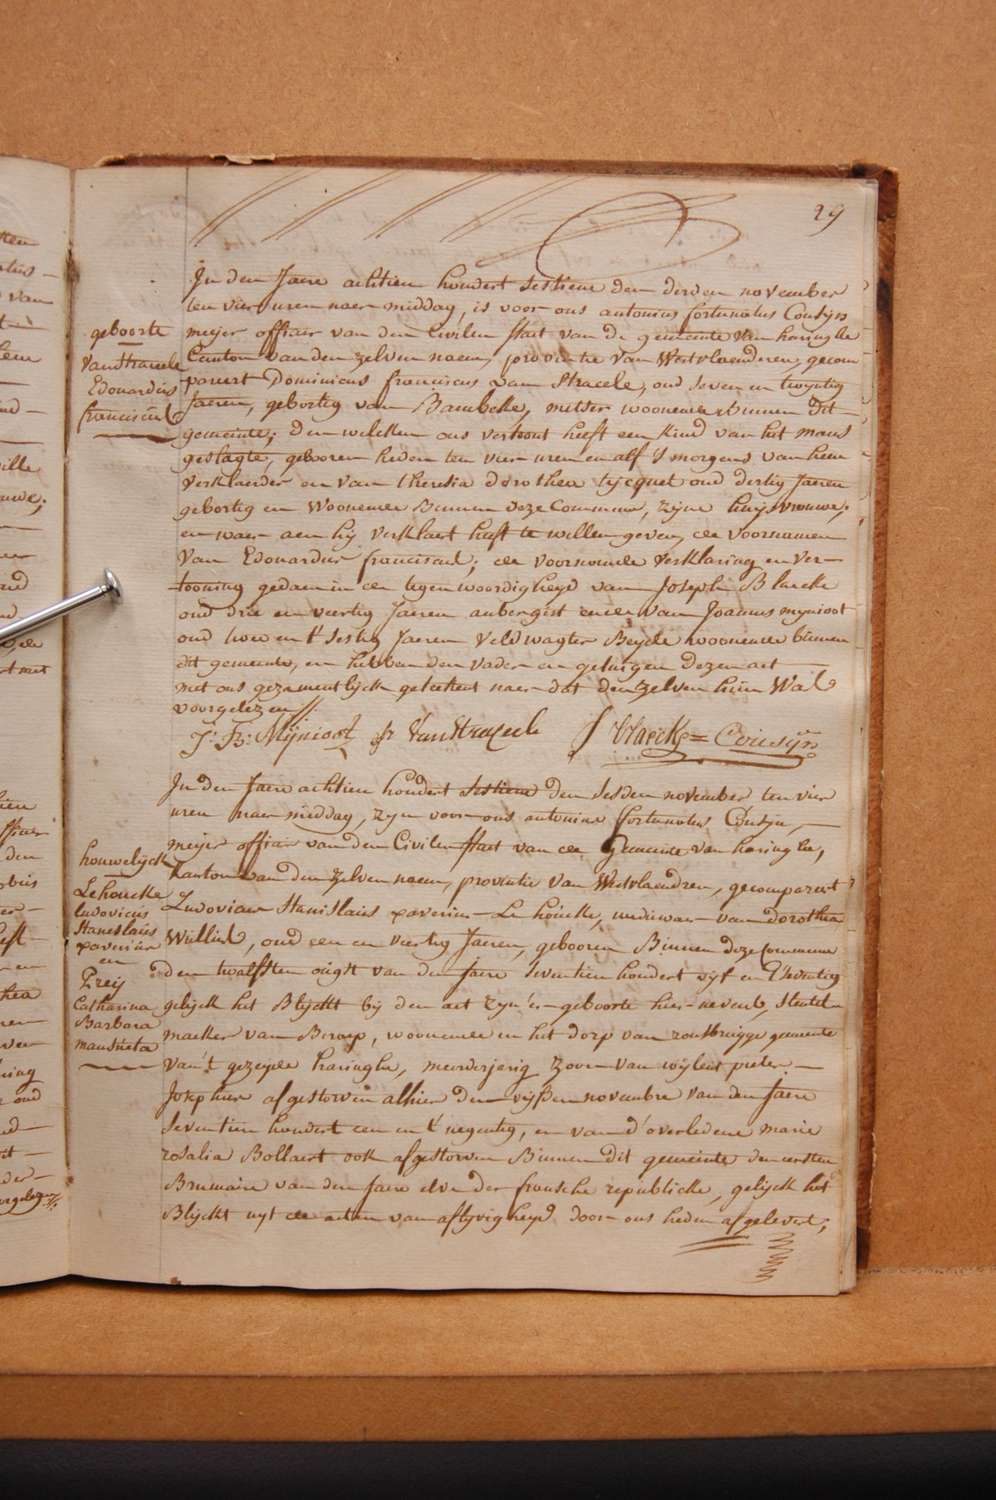 29
In den Jaere achtien hondert sestiene den derden november
ten vier uren naer middag, is voor ons antonius fortunatus Cousyn
meijer officier van den Civilen staet van de gemeente van haringhe
Canton van den zelven naem, provintie van Westvlaenderen, gecom
pareert Dominicus franciscus van Stracele, oud seven en twyntig
Jaeren, gebortig van Bambeke, metser woonende Binnen dit
gemeente; den welcken ons vertoont heeft een kind van het mans
geslagte, gebooren heden ten vier uren en alf 's morgens van hem
verklaerder en van theresia dorothea tycquet oud dertig Jaeren
gebortig en Woonende Binnen deze Commune, zijne huijsvrouwe;
en waer aen hij verklaert heeft te willen geven de voornamen
van Edouardus franciscus; de voornoemde verklaring en ver-
tooning gedaen in de tegenwoordigheyd van Joseph Blaecke
oud drie en viertig Jaeren aubergist ende van Joannes mynioot
oud twee en t'sestig Jaeren veldwagter Beyde woonende binnen
dit gemeente, en hebben den vader en getuigen dezen act
met ons gezamentlijck geteekent naer dat den zelven hun Wa's
voorgelezen
geboorte
VanStracele
Edouardus
franciscus
J: B: Mÿnioot D: VanStracele J Blaecke = Cousÿn
In den Jaere achtien hondert sestiene den sesden november ten vier
uren naer middag, zyn voor ons antonius fortunatus Cousyn,
meijer officier van den Civilen staet van de gemeente van haringhe,
Kanton van den zelven naem, provintie van Westvlaendren, gecompareert
Ludovicus Stanislaüs xaverius Lehoucke, weduwaer van dorothea
Williot, oud een en viertig Jaeren, gebooren Binnen deze Commune
den twalfsten ougst van den Jaere seventien hondert vyf en tseventig
gelyck het Blyckt by den act zyn'er geboorte hier-nevens, sleutel
maeker van Beroep, woonende in het dorp van rousbrugge gemeente
van't gezeyde haringhe, meerderjarig zoon van wylent pieter
Joseph hier afgestorven alhier den vyfsten novembre van den Jaere
seventien hondert een en t'negentig, en van d'overledene marie
rosalia Bollaert ook afgestorven Binnen dit gemeente den eersten
Brumaire van den Jaere elve der fransche republicke, gelyck het
Blyckt uyt de acten van aflyvigheyd door ons heden afgelevert;
houwelijck
Lehoucke
ludovicus
Stanislaüs
xaverius
en
Preÿ
Catharina
Barbara
mansueta